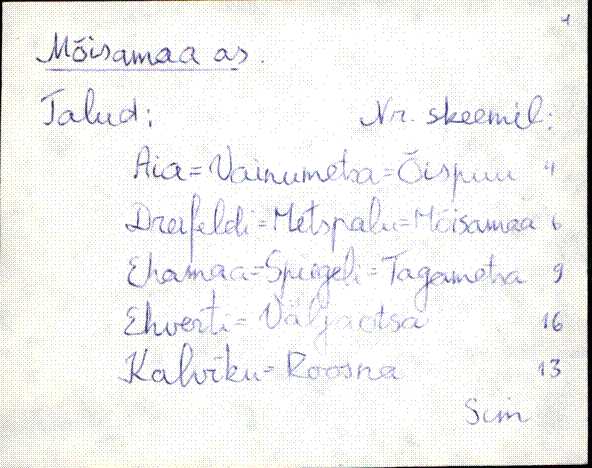 1
Mõisamaa as.
Talud: Nr. skeemil:
Aia=Vainumetsa=Õispuu 4
Dreifeldi=Metspalu=Mõisamaa 6
Ehamaa=Spiegeli=Tagametsa 9
Ehverti=Väljaotsa 16
Kalviku=Roosna 13
Sim